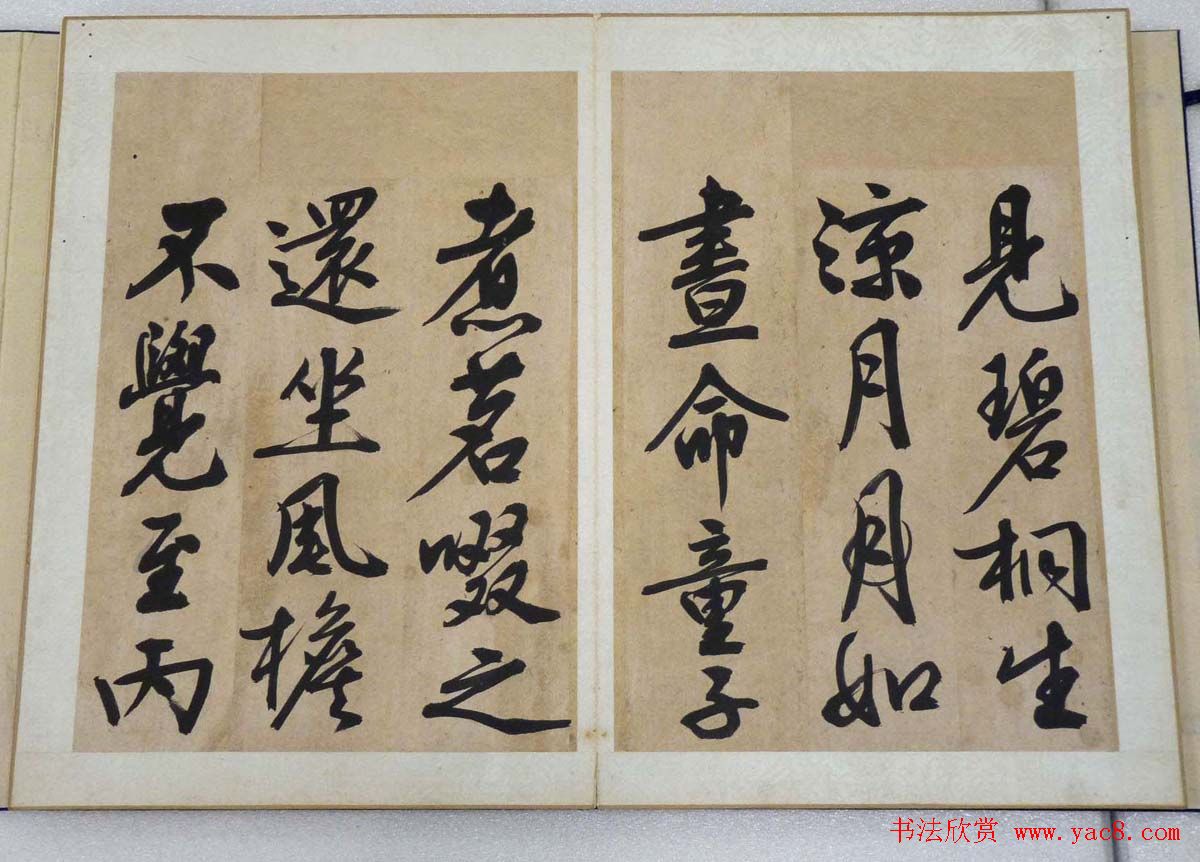 見碧桐生
涼月月如
晝命童子
煮茗啜之
還坐風檐
不覺至丙
书法欣赏 www.yac8.com